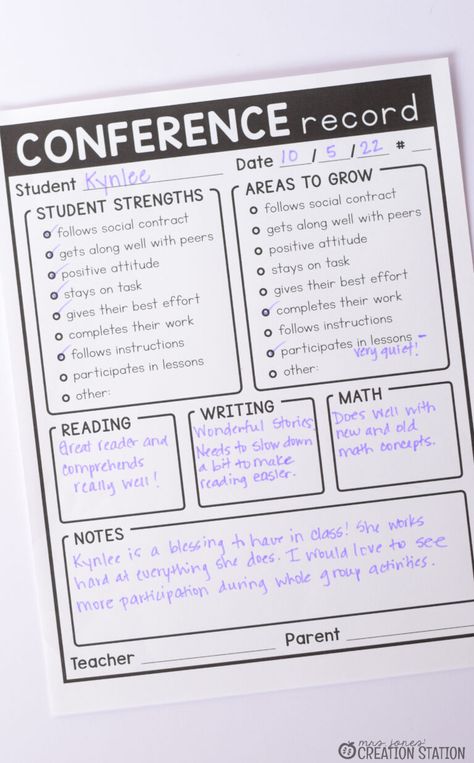 CONFERENCE record
Student Kynlee Date 10 / 5 / 22 #
STUDENT STRENGTHS
follows social contract
gets along well with peers
positive attitude
stays on task
gives their best effort
completes their work
follows instructions
participates in lessons
other:
AREAS TO GROW
follows social contract
gets along well with peers
positive attitude
stays on task
gives their best effort
completes their work
follows instructions
participates in lessons -
very quiet!
other:
READING
Great reader and
comprehends
really well!
WRITING
Wonderful stories.
Needs to slow down
a bit to make
reading easier.
MATH
Does well with
new and old
math concepts.
NOTES
Kynlee is a blessing to have in class! She works
hard at everything she does. I would love to see
more participation during whole group activities.
Teacher Parent
mrs. jones'
CREATION STATION